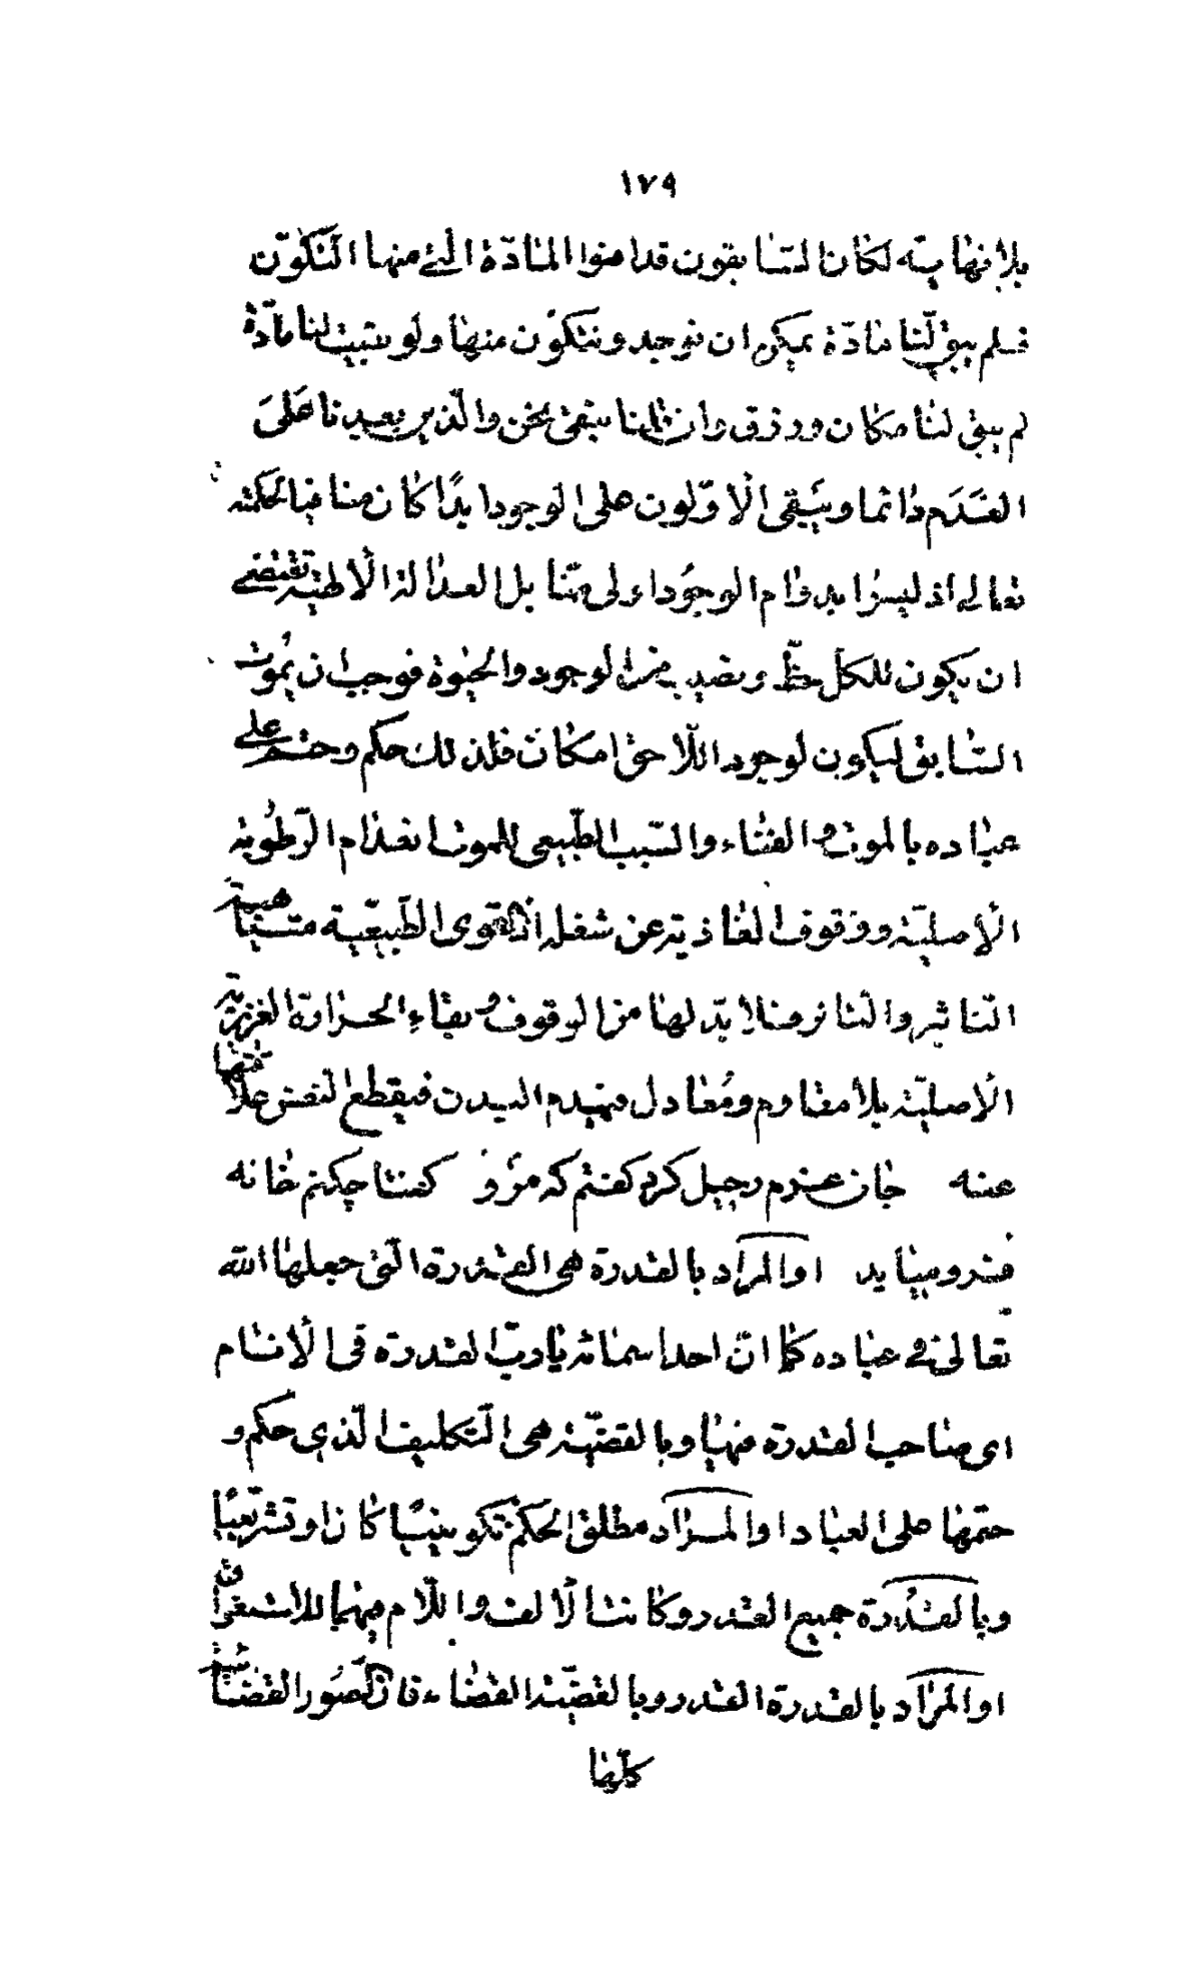 ١٧٩
بلا نهاية لكان السّابقون قد افنوا المادّة الّتى منها التّكوّن
فلم يبق لنا مادّة يمكن ان نوجد و نتكوّن منها ولو بقيت لنا مادّة
لم يبق لنا مكان و رزق وان قلنا نبقى نحن والّذين بعدنا على
العَدَم دائما ويبقى الاوّلون على الوجود ابدًا كان منافيا لحكمته
تعالى اذ ليسوا بدوام الوجود اولى منّا بل العدالة الالهيّة تقتضى
ان يكون للكل حظّ ونصيب من الوجود والحيوة فوجب ان يموت
السّابق ليكون لوجود اللّاحق امكان فلذلك حكم وحتم على
عباده بالموت و الفناء والسّبب الطّبيعى للموت انعدام الرّطوبة
الاصليّة ووقوف الغاذية عن شغلها اذ القوى الطّبيعيّة متناهية
التّاثير والتّاثر فلا بدّ لها من الوقوف و بقاء الحرارة الغريزية
الاصليّة بلا مقاوم ومُعادل فينهدم البدن فيقطع النفس علاقتها
عنه جان عزم رحيل كرد كفتم كه مرو كفتا چكنم خانه
فرو ميايد او المراد بالقدرة هى القدرة الّتى جعلها الله
تعالى فى عباده كما انّ احد اسمائه ياربّ القدرة فى الانام
اى صاحب القدرة فيها وبالقضيّة هى التّكليف الّذى حكم و
حتمها على العباد او المراد مطلق الحكم تكوينيّا كان او تشريعيّا
وبالقدرة جميع القدر وكانت الالف و اللّام فيهما للاستغراق
او المراد بالقدرة القدر وبالقضيّة القضاء فان الصّور القضائيّة
كلّها